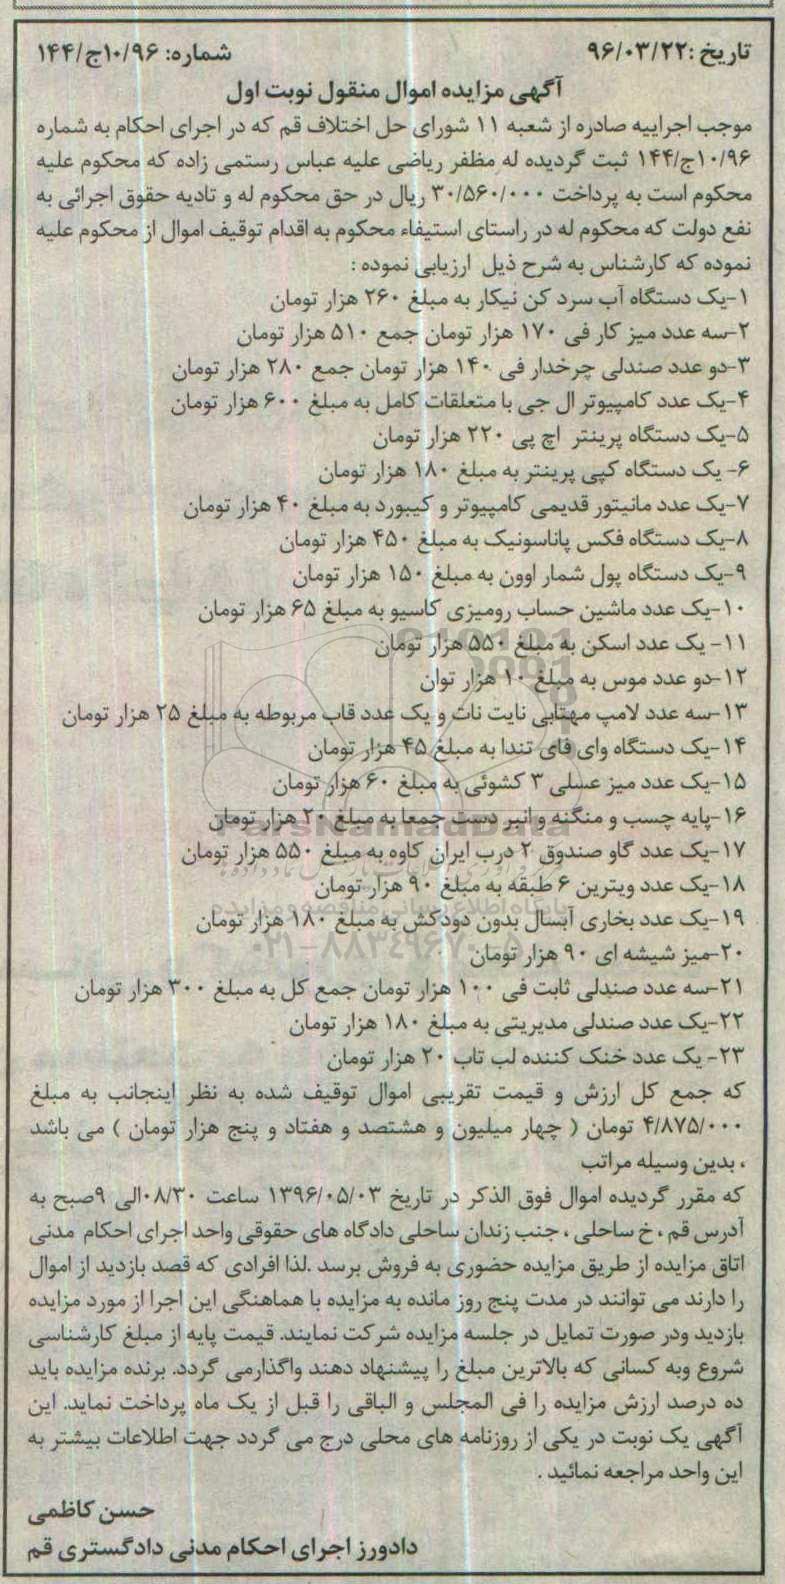 تاریخ :۹۶/۰۳/۲۲ شماره: ۱۰/۹۶ج/۱۴۴
آگهی مزایده اموال منقول نوبت اول
موجب اجراییه صادره از شعبه ۱۱ شورای حل اختلاف قم که در اجرای احکام به شماره
۱۰/۹۶ج/۱۴۴ ثبت گردیده له مظفر ریاضی علیه عباس رستمی زاده که محکوم علیه
محکوم است به پرداخت ۳۰/۵۶۰/۰۰۰ ریال در حق محکوم له و تادیه حقوق اجرائی به
نفع دولت که محکوم له در راستای استیفاء محکوم به اقدام توقیف اموال از محکوم علیه
نموده که کارشناس به شرح ذیل ارزیابی نموده :
۱-یک دستگاه آب سرد کن نیکار به مبلغ ۲۶۰ هزار تومان
۲-سه عدد میز کار فی ۱۷۰ هزار تومان جمع ۵۱۰ هزار تومان
۳-دو عدد صندلی چرخدار فی ۱۴۰ هزار تومان جمع ۲۸۰ هزار تومان
۴-یک عدد کامپیوتر ال جی با متعلقات کامل به مبلغ ۶۰۰ هزار تومان
۵-یک دستگاه پرینتر اچ پی ۲۲۰ هزار تومان
۶- یک دستگاه کپی پرینتر به مبلغ ۱۸۰ هزار تومان
۷-یک عدد مانیتور قدیمی کامپیوتر و کیبورد به مبلغ ۴۰ هزار تومان
۸-یک دستگاه فکس پاناسونیک به مبلغ ۴۵۰ هزار تومان
۹-یک دستگاه پول شمار اوون به مبلغ ۱۵۰ هزار تومان
۱۰-یک عدد ماشین حساب رومیزی کاسیو به مبلغ ۶۵ هزار تومان
۱۱- یک عدد اسکن به مبلغ ۵۵۰ هزار تومان
۱۲-دو عدد موس به مبلغ ۱۰ هزار توان
۱۳-سه عدد لامپ مهتابی نایت نات و یک عدد قاب مربوطه به مبلغ ۲۵ هزار تومان
۱۴-یک دستگاه وای فای تندا به مبلغ ۴۵ هزار تومان
۱۵-یک عدد میز عسلی ۳ کشوئی به مبلغ ۶۰ هزار تومان
۱۶-پایه چسب و منگنه و انبر دست جمعا به مبلغ ۲۰ هزار تومان
۱۷-یک عدد گاو صندوق ۲ درب ایران کاوه به مبلغ ۵۵۰ هزار تومان
۱۸-یک عدد ویترین ۶ طبقه به مبلغ ۹۰ هزار تومان
۱۹-یک عدد بخاری آبسال بدون دودکش به مبلغ ۱۸۰ هزار تومان
۲۰-میز شیشه ای ۹۰ هزار تومان
۲۱-سه عدد صندلی ثابت فی ۱۰۰ هزار تومان جمع کل به مبلغ ۳۰۰ هزار تومان
۲۲-یک عدد صندلی مدیریتی به مبلغ ۱۸۰ هزار تومان
۲۳- یک عدد خنک کننده لب تاب ۲۰ هزار تومان
که جمع کل ارزش و قیمت تقریبی اموال توقیف شده به نظر اینجانب به مبلغ
۴/۸۷۵/۰۰۰ تومان ( چهار میلیون و هشتصد و هفتاد و پنج هزار تومان ) می باشد
، بدین وسیله مراتب
که مقرر گردیده اموال فوق الذکر در تاریخ ۱۳۹۶/۰۵/۰۳ ساعت ۰۸/۳۰الی ۹صبح به
آدرس قم ، خ ساحلی ، جنب زندان ساحلی دادگاه های حقوقی واحد اجرای احکام مدنی
اتاق مزایده از طریق مزایده حضوری به فروش برسد .لذا افرادی که قصد بازدید از اموال
را دارند می توانند در مدت پنج روز مانده به مزایده با هماهنگی این اجرا از مورد مزایده
بازدید ودر صورت تمایل در جلسه مزایده شرکت نمایند. قیمت پایه از مبلغ کارشناسی
شروع وبه کسانی که بالاترین مبلغ را پیشنهاد دهند واگذارمی گردد. برنده مزایده باید
ده درصد ارزش مزایده را فی المجلس و الباقی را قبل از یک ماه پرداخت نماید. این
آگهی یک نوبت در یکی از روزنامه های محلی درج می گردد جهت اطلاعات بیشتر به
این واحد مراجعه نمائید .
حسن کاظمی
دادورز اجرای احکام مدنی دادگستری قم
ParsNamadData
پایگاه اطلاع رسانی مناقصه و مزایده
۰۲۱-۸۸۳۴۹۶۷۰-۵